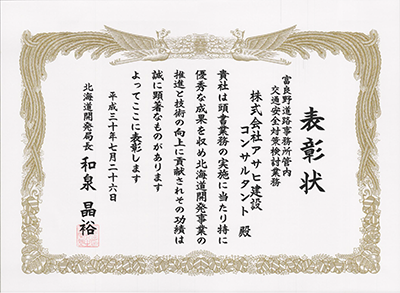 表彰状
富良野道路事務所管内
交通安全対策検討業務
株式会社アサヒ建設
コンサルタント 殿
貴社は頭書業務の実施に当たり特に
優秀な成果を収め北海道開発事業の
推進と技術の向上に貢献されその功績は
誠に顕著なものがあります
よってここに表彰します
平成三十年七月二十六日
北海道開発局長 和泉 晶裕